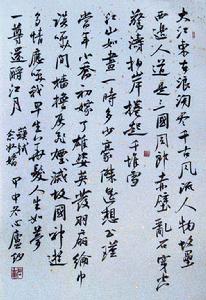 大江東去浪淘盡千古風流人物故壘
西邊人道是三國周郎赤壁亂石穿空
驚濤拍岸捲起千堆雪
江山如畫一時多少豪傑遙想公瑾
當年小喬初嫁了雄姿英發羽扇綸巾
談笑間檣櫓灰飛煙滅故國神遊
多情應笑我早生華髮人生如夢
一尊還酹江月
蘇軾
念奴嬌
甲申冬